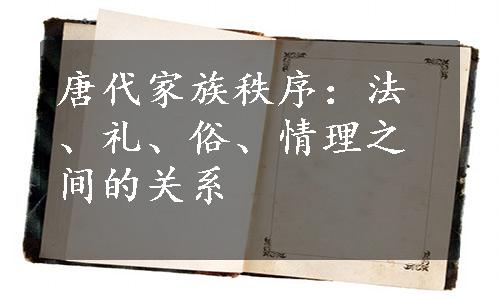 唐代家族秩序：法
、礼、俗、情理之
间的关系